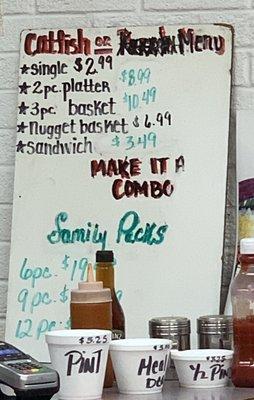 Catfish or Menu
★single $2.99
★2pc. platter $8.99
★3pc. basket $10.49
★nugget basket $6.99
★sandwich $3.49
MAKE IT A
COMBO
Family Packs
6pc. $19
9pc.
12pc.
$5.25
PINT
$3.25
½ Pt